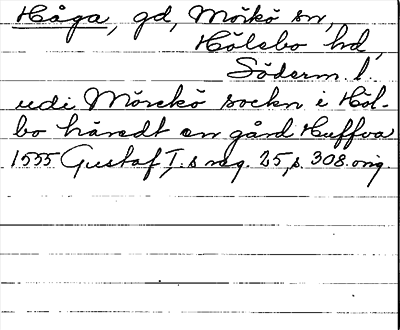 Håga, gd, Mörkö sn,
Hölebo hd,
Söderm. l.
udi Mörekö sockn i Höl-
bo häredt en gård Huffva
1555 Gustaf I:s reg. 25, s. 308. orig.